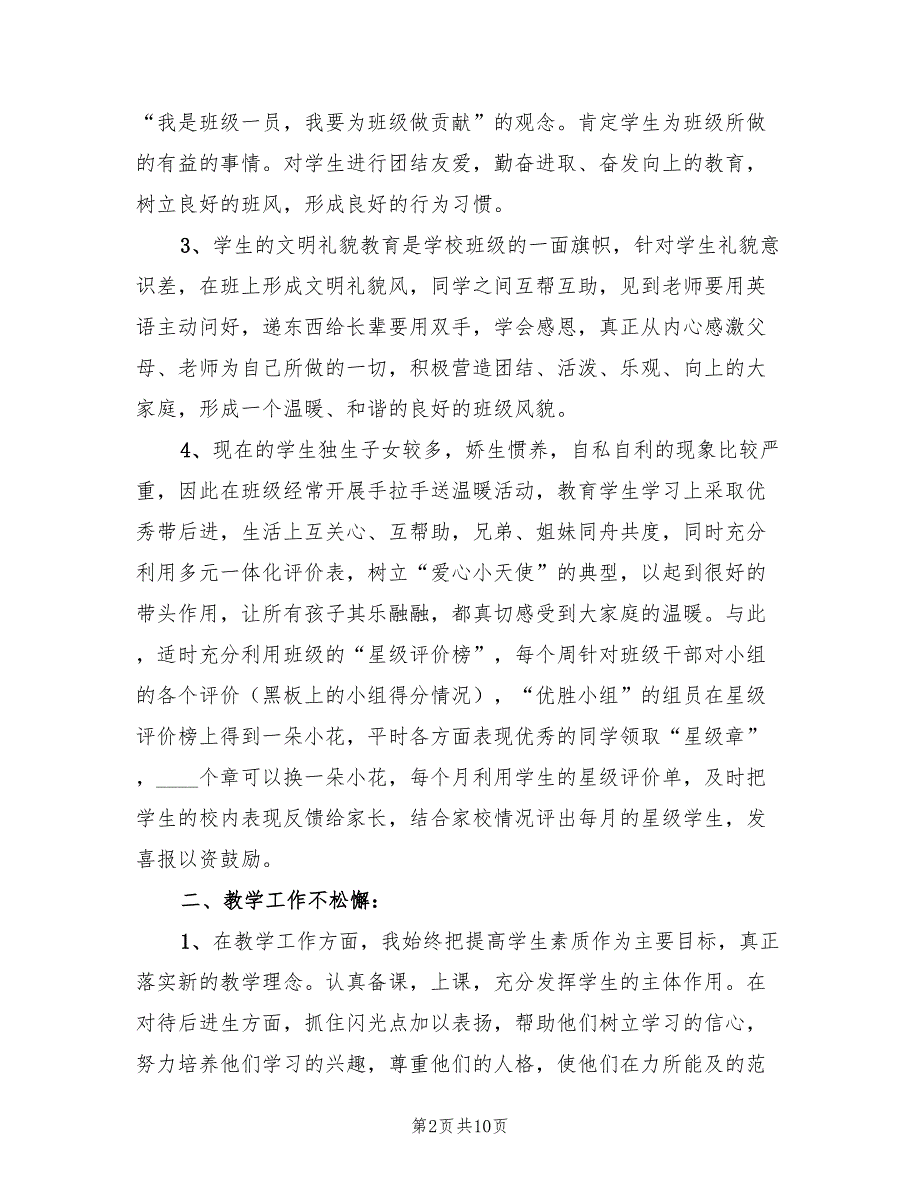 “我是班级一员，我要为班级做贡献”的观念。肯定学生为班级所做
的有益的事情。对学生进行团结友爱，勤奋进取、奋发向上的教育，
树立良好的班风，形成良好的行为习惯。
3、学生的文明礼貌教育是学校班级的一面旗帜，针对学生礼貌意
识差，在班上形成文明礼貌风，同学之间互帮互助，见到老师要用英
语主动问好，递东西给长辈要用双手，学会感恩，真正从内心感激父
母、老师为自己所做的一切，积极营造团结、活泼、乐观、向上的大
家庭，形成一个温暖、和谐的良好的班级风貌。
4、现在的学生独生子女较多，娇生惯养，自私自利的现象比较严
重，因此在班级经常开展手拉手送温暖活动，教育学生学习上采取优
秀带后进，生活上互关心、互帮助，兄弟、姐妹同舟共度，同时充分
利用多元一体化评价表，树立“爱心小天使”的典型，以起到很好的
带头作用，让所有孩子其乐融融，都真切感受到大家庭的温暖。与此
，适时充分利用班级的“星级评价榜”，每个周针对班级干部对小组
的各个评价（黑板上的小组得分情况），“优胜小组”的组员在星级
评价榜上得到一朵小花，平时各方面表现优秀的同学领取“星级章”
，____个章可以换一朵小花，每个月利用学生的星级评价单，及时把
学生的校内表现反馈给家长，结合家校情况评出每月的星级学生，发
喜报以资鼓励。
二、教学工作不松懈：
1、在教学工作方面，我始终把提高学生素质作为主要目标，真正
落实新的教学理念。认真备课，上课，充分发挥学生的主体作用。在
对待后进生方面，抓住闪光点加以表扬，帮助他们树立学习的信心，
努力培养他们学习的兴趣，尊重他们的人格，使他们在力所能及的范
第2页共10页